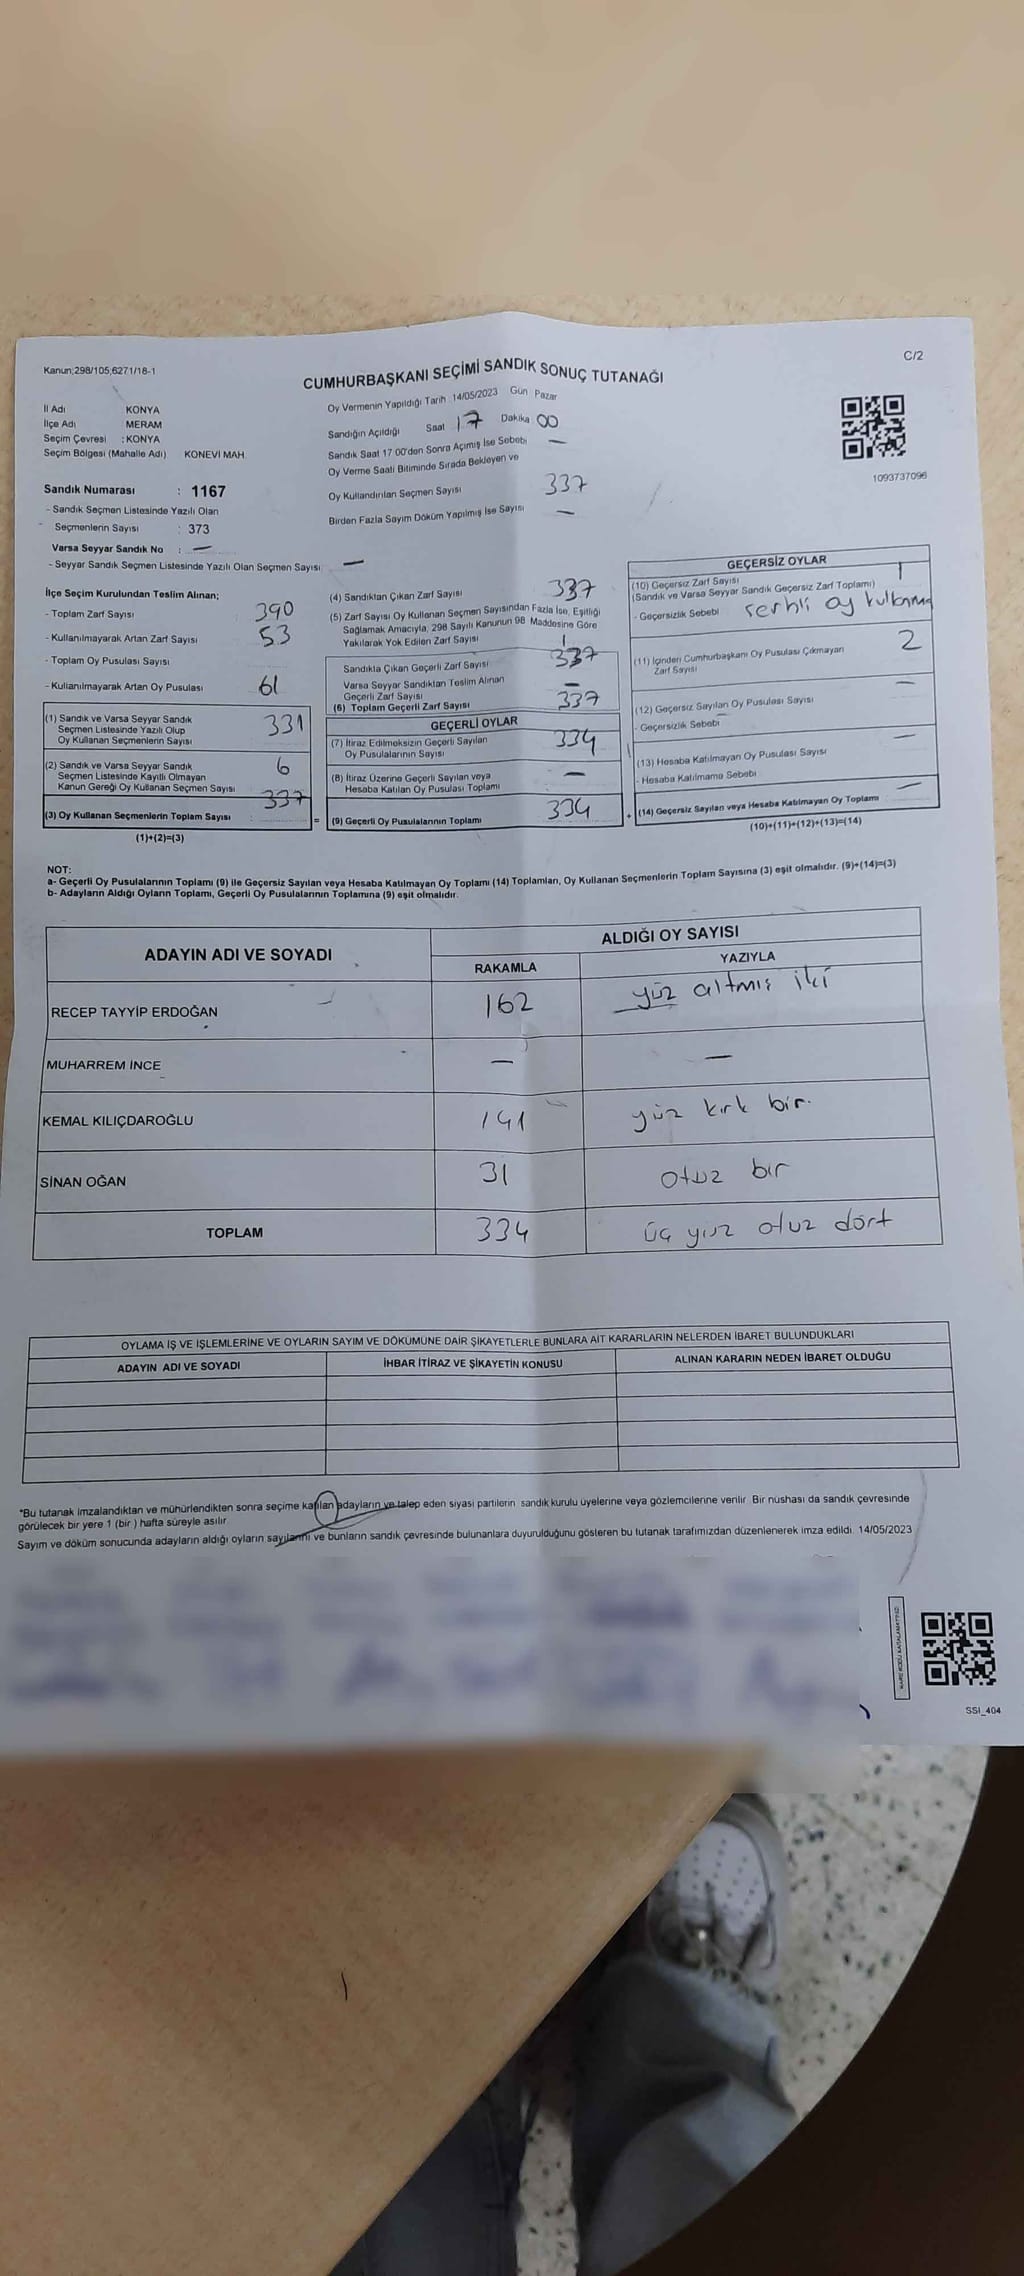 Kanun;298/105,6271/18-1
C/2
CUMHURBAŞKANI SEÇİMİ SANDIK SONUÇ TUTANAĞI
İl Adı KONYA
İlçe Adı MERAM
Seçim Çevresi : KONYA
Seçim Bölgesi (Mahalle Adı) KONEVİ MAH.
Sandık Numarası : 1167
- Sandık Seçmen Listesinde Yazılı Olan
Seçmenlerin Sayısı : 373
Varsa Seyyar Sandık No : —
- Seyyar Sandık Seçmen Listesinde Yazılı Olan Seçmen Sayısı —
Oy Vermenin Yapıldığı Tarih 14/05/2023 Gün Pazar
Sandığın Açıldığı Saat 17 Dakika 00
Sandık Saat 17 00'den Sonra Açımış İse Sebebi —
Oy Verme Saati Bitiminde Sırada Bekleyen ve
Oy Kullandırılan Seçmen Sayısı 337
Birden Fazla Sayım Döküm Yapılmış İse Sayısı —
1093737096
İlçe Seçim Kurulundan Teslim Alınan;
- Toplam Zarf Sayısı 390
- Kullanılmayarak Artan Zarf Sayısı 53
- Toplam Oy Pusulası Sayısı
- Kullanılmayarak Artan Oy Pusulası 61
(1) Sandık ve Varsa Seyyar Sandık
Seçmen Listesinde Yazılı Olup
Oy Kullanan Seçmenlerin Sayısı 331
(2) Sandık ve Varsa Seyyar Sandık
Seçmen Listesinde Kayıtlı Olmayan
Kanun Gereği Oy Kullanan Seçmen Sayısı 6
(3) Oy Kullanan Seçmenlerin Toplam Sayısı : 337
(1)+(2)=(3)
(4) Sandıktan Çıkan Zarf Sayısı 337
(5) Zarf Sayısı Oy Kullanan Seçmen Sayısından Fazla İse, Eşitliği
Sağlamak Amacıyla, 298 Sayılı Kanunun 98 Maddesine Göre
Yakılarak Yok Edilen Zarf Sayısı
Sandıkta Çıkan Geçerli Zarf Sayısı 337
Varsa Seyyar Sandıktan Teslim Alınan
Geçerli Zarf Sayısı —
(6) Toplam Geçerli Zarf Sayısı 337
GEÇERLİ OYLAR
(7) İtiraz Edilmeksizin Geçerli Sayılan
Oy Pusulalarının Sayısı 334
(8) İtiraz Üzerine Geçerli Sayılan veya
Hesaba Katılan Oy Pusulası Toplamı —
= (9) Geçerli Oy Pusulalarının Toplamı 334
GEÇERSİZ OYLAR
(10) Geçersiz Zarf Sayısı 1
(Sandık ve Varsa Seyyar Sandık Geçersiz Zarf Toplamı)
- Geçersizlik Sebebi
(11) İçinden Cumhurbaşkanı Oy Pusulası Çıkmayan
Zarf Sayısı 2
(12) Geçersiz Sayılan Oy Pusulası Sayısı —
- Geçersizlik Sebebi
(13) Hesaba Katılmayan Oy Pusulası Sayısı —
- Hesaba Katılmama Sebebi
+ (14) Geçersiz Sayılan veya Hesaba Katılmayan Oy Toplamı —
(10)+(11)+(12)+(13)=(14)
NOT:
a- Geçerli Oy Pusulalarının Toplamı (9) ile Geçersiz Sayılan veya Hesaba Katılmayan Oy Toplamı (14) Toplamları, Oy Kullanan Seçmenlerin Toplam Sayısına (3) eşit olmalıdır. (9)+(14)=(3)
b- Adayların Aldığı Oyların Toplamı, Geçerli Oy Pusulalarının Toplamına (9) eşit olmalıdır.
ADAYIN ADI VE SOYADI ALDIĞI OY SAYISI
RAKAMLA YAZIYLA
RECEP TAYYİP ERDOĞAN 162 yüz altmış iki
MUHARREM İNCE — —
KEMAL KILIÇDAROĞLU 141 yüz kırk bir.
SİNAN OĞAN 31 otuz bir
TOPLAM 334 üç yüz otuz dört
OYLAMA İŞ VE İŞLEMLERİNE VE OYLARIN SAYIM VE DÖKÜMÜNE DAİR ŞİKAYETLERLE BUNLARA AİT KARARLARIN NELERDEN İBARET BULUNDUKLARI
ADAYIN ADI VE SOYADI İHBAR İTİRAZ VE ŞİKAYETİN KONUSU ALINAN KARARIN NEDEN İBARET OLDUĞU
*Bu tutanak imzalandıktan ve mühürlendikten sonra seçime katılan adayların ve talep eden siyasi partilerin sandık kurulu üyelerine veya gözlemcilerine verilir. Bir nüshası da sandık çevresinde
görülecek bir yere 1 (bir ) hafta süreyle asılır
Sayım ve döküm sonucunda adayların aldığı oyların sayılarını ve bunların sandık çevresinde bulunanlara duyurulduğunu gösteren bu tutanak tarafımızdan düzenlenerek imza edildi. 14/05/2023
KARE KODU KARALAMAYINIZ!
SSI_404